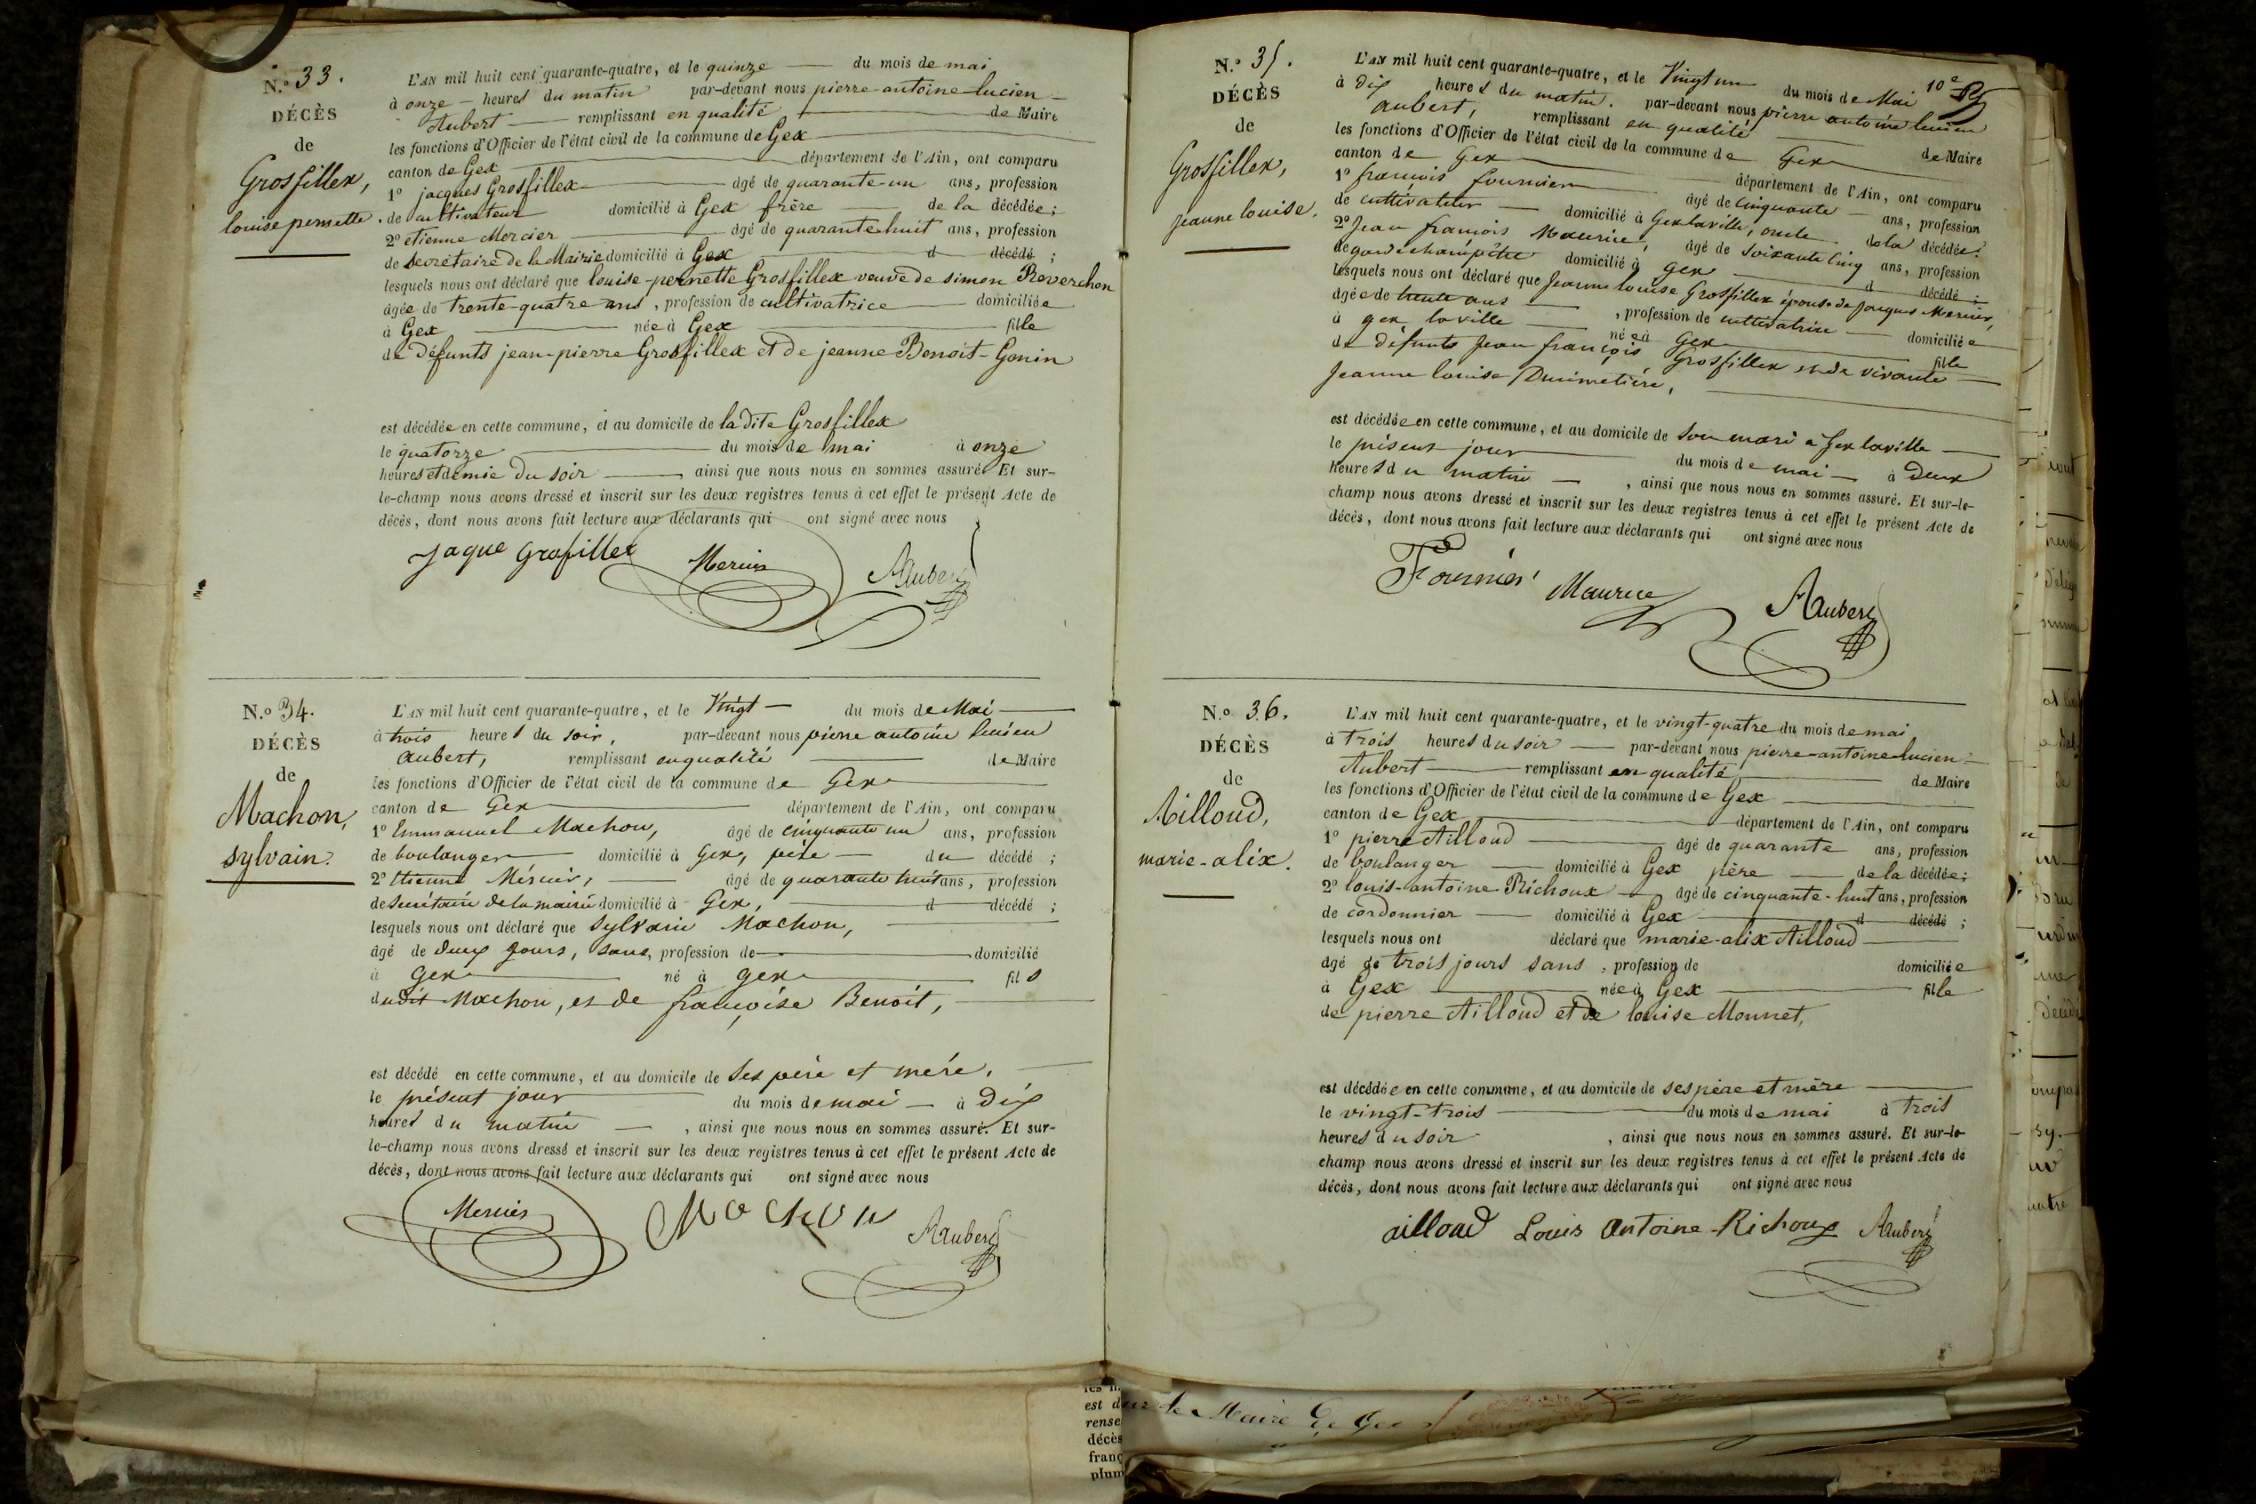 N.º 33.
DÉCÈS
de
Grosfillex,
louise pernette.
L'AN mil huit cent quarante-quatre, et le quinze du mois de mai
à onze heures du matin par-devant nous pierre-antoine-lucien
Aubert remplissant en qualité de Maire
les fonctions d'Officier de l'état civil de la commune de Gex
canton de Gex département de l'Ain, ont comparu
1º jacques Grosfillex âgé de quarante-un ans, profession
de cultivateur domicilié à Gex frère de la décédée;
2º etienne Mercier âgé de quarante-huit ans, profession
de secrétaire de la Mairie domicilié à Gex d décédé ;
lesquels nous ont déclaré que louise-pernette Grosfillex veuve de simon Reverchon
âgée de trente-quatre ans, profession de cultivatrice domiciliée
à Gex née à Gex fille
de défunts jean-pierre Grosfillex et de jeanne Benoit-Gonin
est décédée en cette commune, et au domicile de la dite Grosfillex
le quatorze du mois de mai à onze
heures et demie du soir ainsi que nous nous en sommes assuré. Et sur-
le-champ nous avons dressé et inscrit sur les deux registres tenus à cet effet le présent Acte de
décès, dont nous avons fait lecture aux déclarants qui ont signé avec nous
Jaque Grosfillex Mercier AAubert
N.º 34.
DÉCÈS
de
Machon,
sylvain.
L'AN mil huit cent quarante-quatre, et le Vingt du mois de Mai
à trois heures du soir, par-devant nous pierre antoine lucien
Aubert, remplissant en qualité de Maire
les fonctions d'Officier de l'état civil de la commune de Gex
canton de Gex département de l'Ain, ont comparu
1º Emmanuel Machon, âgé de cinquante un ans, profession
de boulanger domicilié à Gex, père du décédé ;
2º Etienne Mercier, âgé de quarante huit ans, profession
de secrétaire de la mairie domicilié à Gex, d décédé ;
lesquels nous ont déclaré que Sylvain Machon,
âgé de deux jours, sans, profession de domicilié
à Gex né à Gex fils
dudit Machon, et de françoise Benoit,
est décédé en cette commune, et au domicile de ses père et mère.
le présent jour du mois de mai à dix
heures du matin , ainsi que nous nous en sommes assuré. Et sur-
le-champ nous avons dressé et inscrit sur les deux registres tenus à cet effet le présent Acte de
décès, dont nous avons fait lecture aux déclarants qui ont signé avec nous
Mercier Machon AAubert
N.º 35.
DÉCÈS
de
Grosfillex,
Jeanne louise.
10e
L'AN mil huit cent quarante-quatre, et le Vingt un du mois de Mai
à dix heures du matin. par-devant nous pierre antoine lucien
Aubert, remplissant en qualité de Maire
les fonctions d'Officier de l'état civil de la commune de Gex
canton de Gex département de l'Ain, ont comparu
1º françois fournier âgé de cinquante ans, profession
de cultivateur domicilié à Gex laville, oncle de la décédée;
2º Jean françois Maurice, âgé de soixante cinq ans, profession
de garde champêtre domicilié à Gex d décédé ;
lesquels nous ont déclaré que Jeanne louise Grosfillex épouse de Jacques Mercier,
âgée de trente ans , profession de cultivatrice domiciliée
à gex laville née à Gex fille
de défunts Jean françois Grosfillex et de vivante
Jeanne louise Dunimetière,
est décédée en cette commune, et au domicile de son mari a Gex laville
le présent jour du mois de mai à deux
heures du matin , ainsi que nous nous en sommes assuré. Et sur-le-
champ nous avons dressé et inscrit sur les deux registres tenus à cet effet le présent Acte de
décès, dont nous avons fait lecture aux déclarants qui ont signé avec nous
Fournier Maurice AAubert
N.º 36.
DÉCÈS
de
Ailloud,
marie-alix.
L'AN mil huit cent quarante-quatre, et le vingt-quatre du mois de mai
à trois heures du soir par-devant nous pierre-antoine-lucien
Aubert remplissant en qualité de Maire
les fonctions d'Officier de l'état civil de la commune de Gex
canton de Gex département de l'Ain, ont comparu
1º pierre Ailloud âgé de quarante ans, profession
de boulanger domicilié à Gex père de la décédée;
2º louis-antoine Richoux âgé de cinquante-huit ans, profession
de cordonnier domicilié à Gex d décédé ;
lesquels nous ont déclaré que marie-alix Ailloud
âgé de trois jours sans , profession de domiciliée
à Gex née à Gex fille
de pierre Ailloud et de louise Monnet.
est décédée en cette commune, et au domicile de ses père et mère
le vingt-trois du mois de mai à trois
heures du soir , ainsi que nous nous en sommes assuré. Et sur-le-
champ nous avons dressé et inscrit sur les deux registres tenus à cet effet le présent Acte de
décès, dont nous avons fait lecture aux déclarants qui ont signé avec nous
ailloud Louis Antoine Richoux AAubert
est d
rense
décès
franç
plum
le Maire de Gex